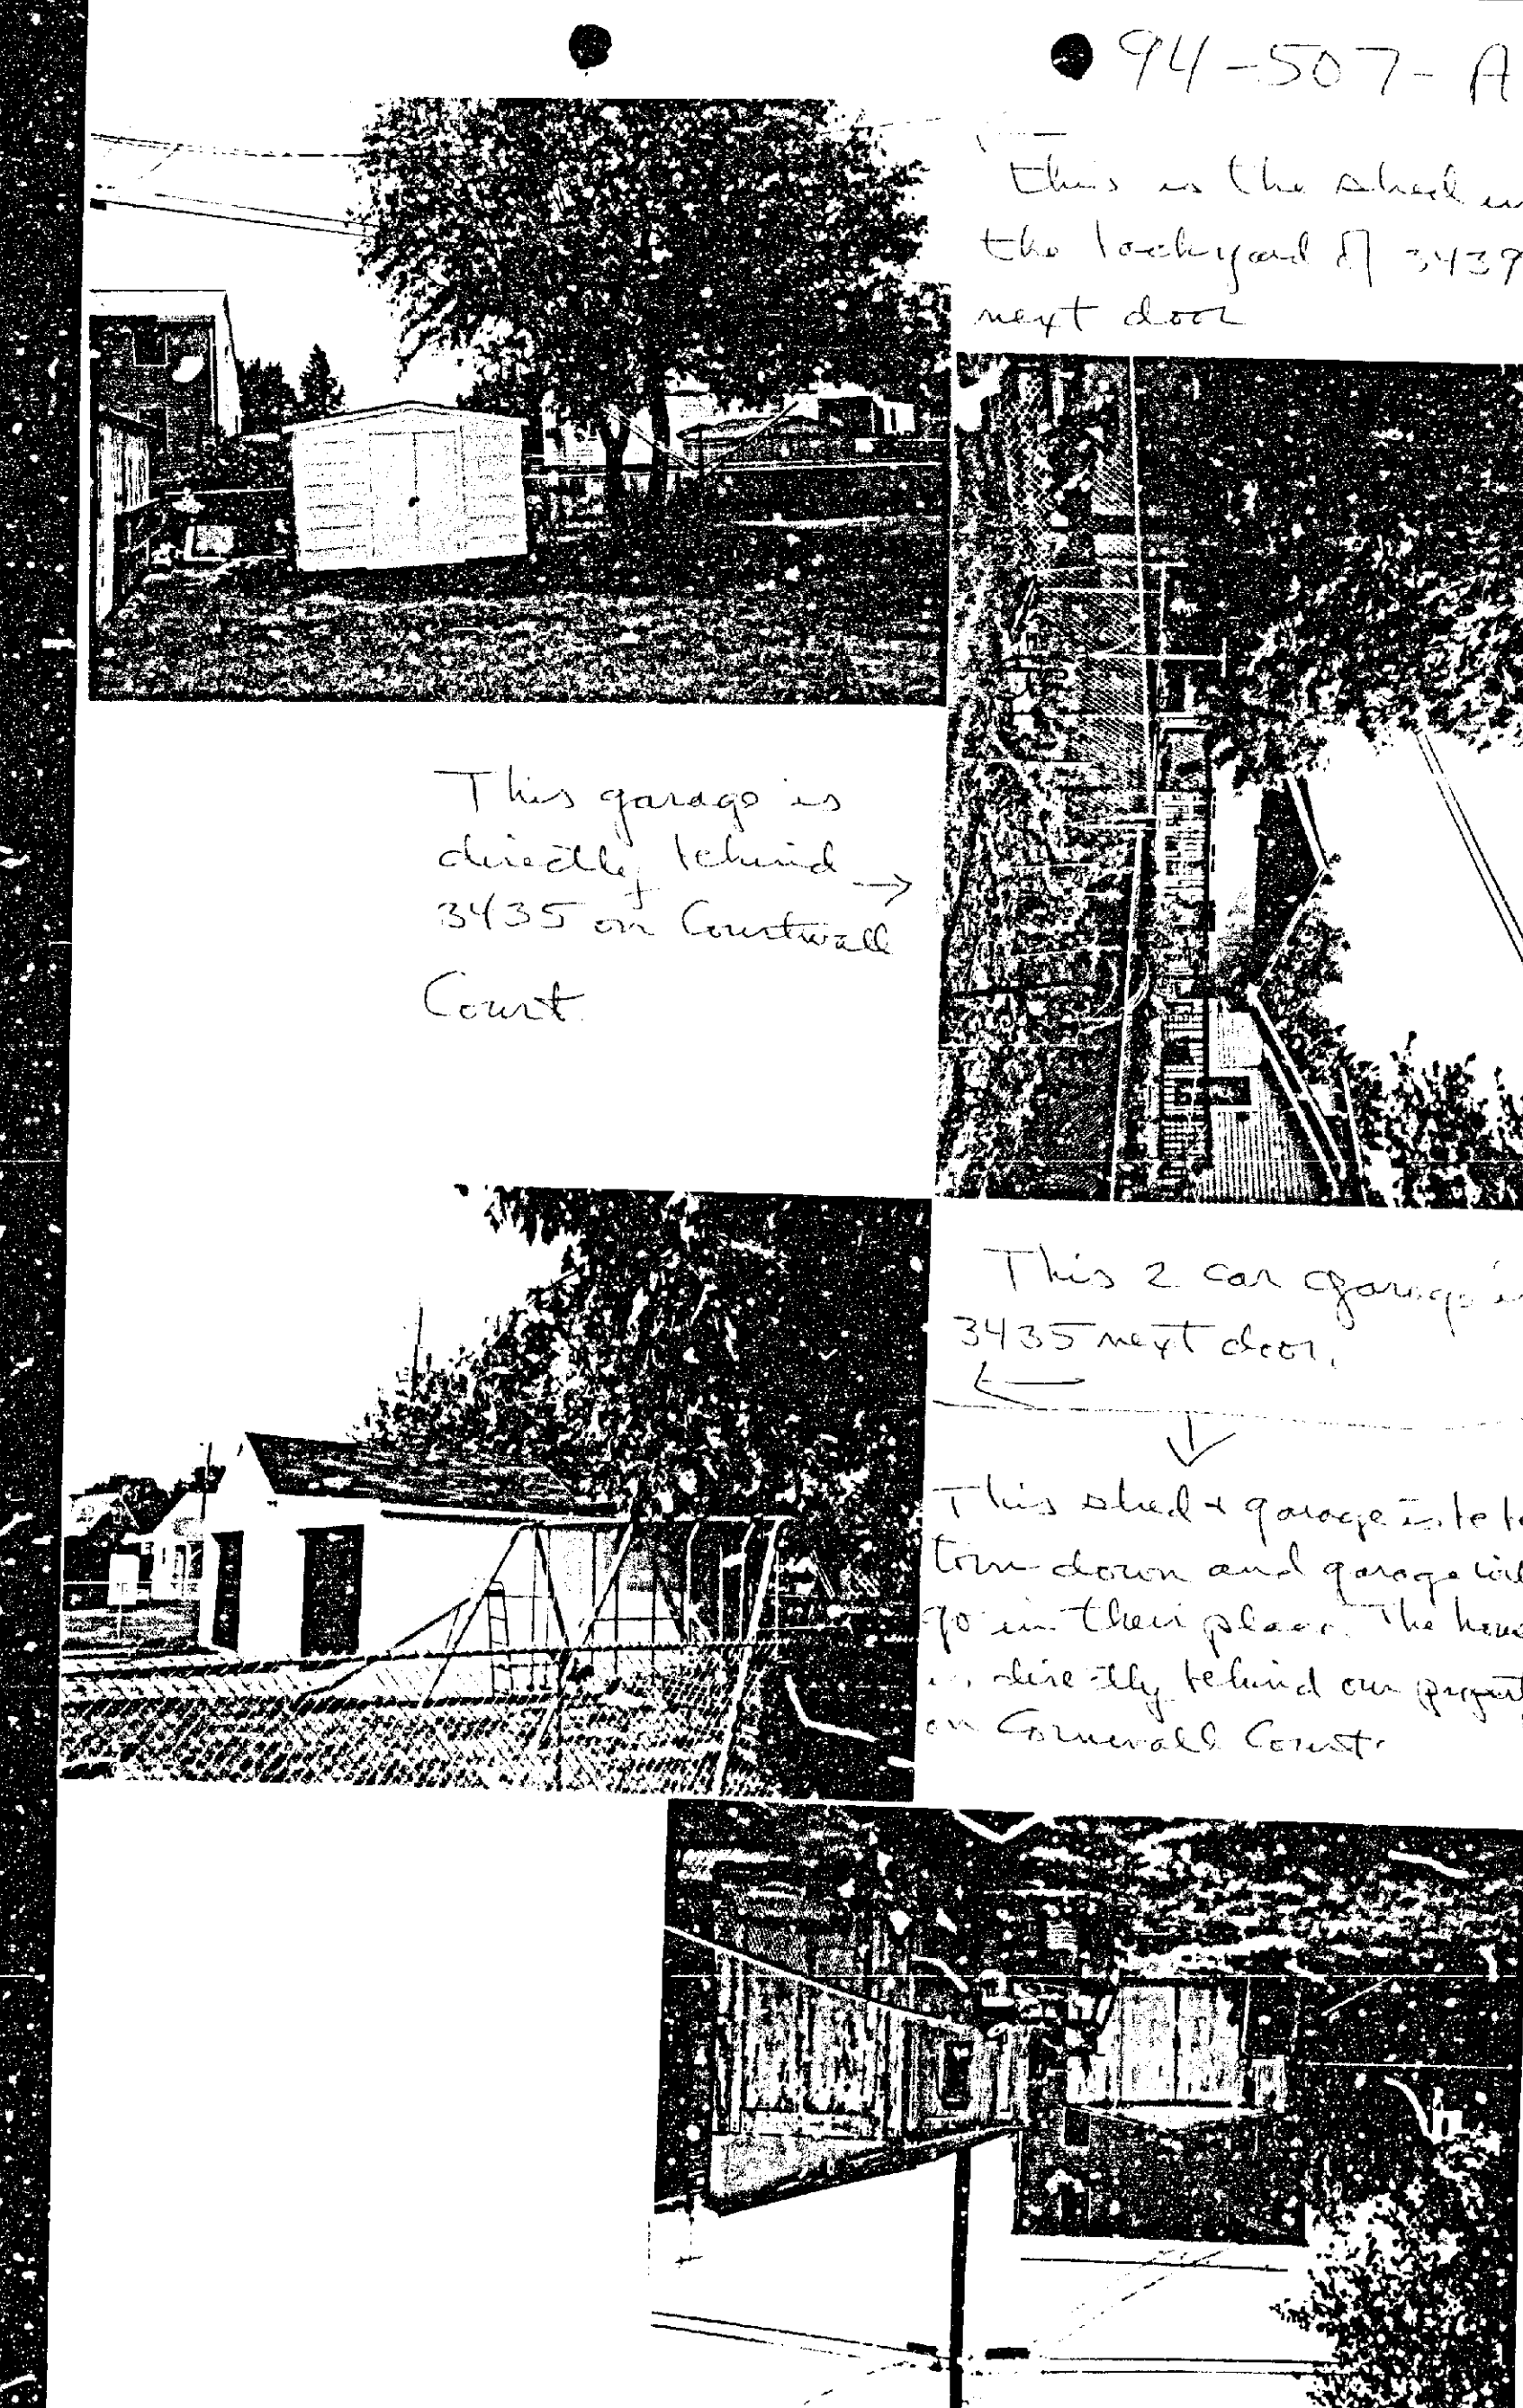 94-507-A
this is the shed in
the backyard of 3439
next door
This garage is
directly behind
3435 on Courtwall
Court
This 2 car garage is
3435 next door.
This shed + garage is to be
torn down and garage will
go in their place. The house
is directly behind our property
on Cornwall Court.